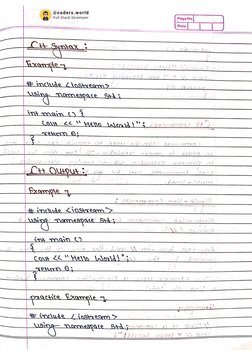 @coders.world
Full Stack Developer
Page No.
Date
C++ Syntax :
Example
# include <iostream>
using namespace std;
int main () {
Cout << "Hello World!";
return 0;
}
C++ Output :
Example
# include <iostream>
using namespace std;
int main ()
{
Cout << "Hello World!";
return 0;
}
practice Example
# include <iostream>
using namespace std;